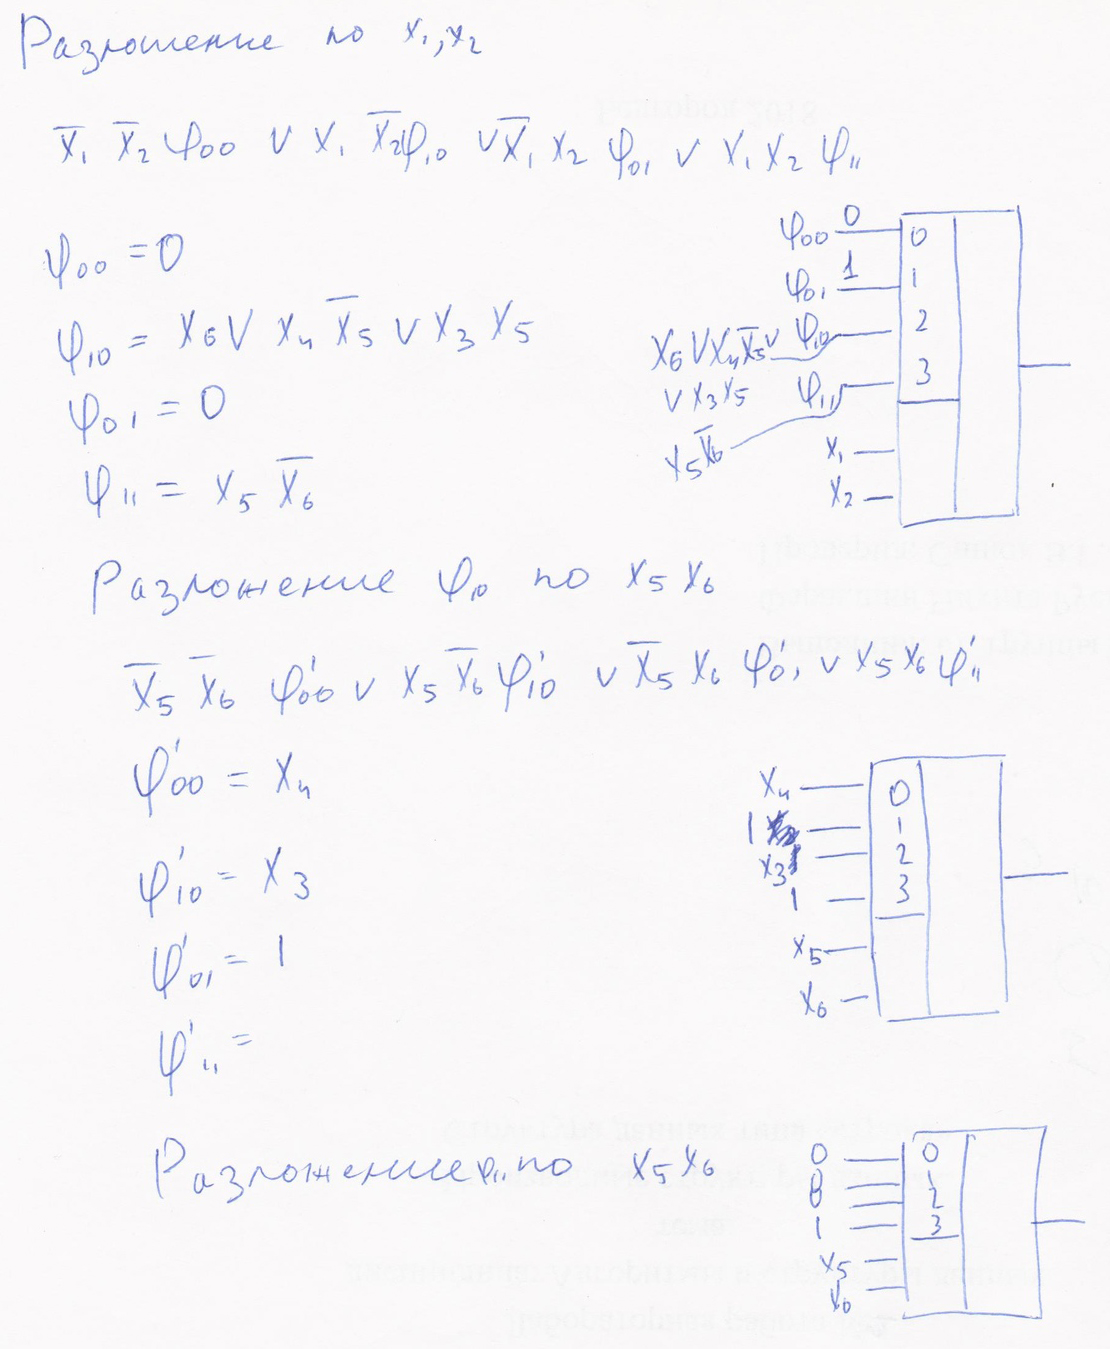 Разложение по x₁,x₂
x̅₁ x̅₂ φ₀₀ ∨ x₁ x̅₂ φ₁₀ ∨ x̅₁ x₂ φ₀₁ ∨ x₁ x₂ φ₁₁
φ₀₀ = 0
φ₁₀ = x₆ ∨ x₄ x̅₅ ∨ x₃ x₅
φ₀₁ = 0
φ₁₁ = x₅ x̅₆
φ₀₀ 0 0
φ₀₁ 1 1
x₆ ∨ x₄ x̅₅ ∨ φ₁₀ 2
∨ x₃ x₅ φ₁₁ 3
x₅ x̅₆
x₁
x₂
Разложение φ₁₀ по x₅ x₆
x̅₅ x̅₆ φ'₀₀ ∨ x₅ x̅₆ φ'₁₀ ∨ x̅₅ x₆ φ'₀₁ ∨ x₅ x₆ φ'₁₁
φ'₀₀ = x₄
φ'₁₀ = x₃
φ'₀₁ = 1
φ'₁₁ =
x₄ 0
1 1
x₃ 2
1 3
x₅
x₆
Разложение φ₁₁ по x₅ x₆
0 0
0 1
0 2
1 3
x₅
x₆